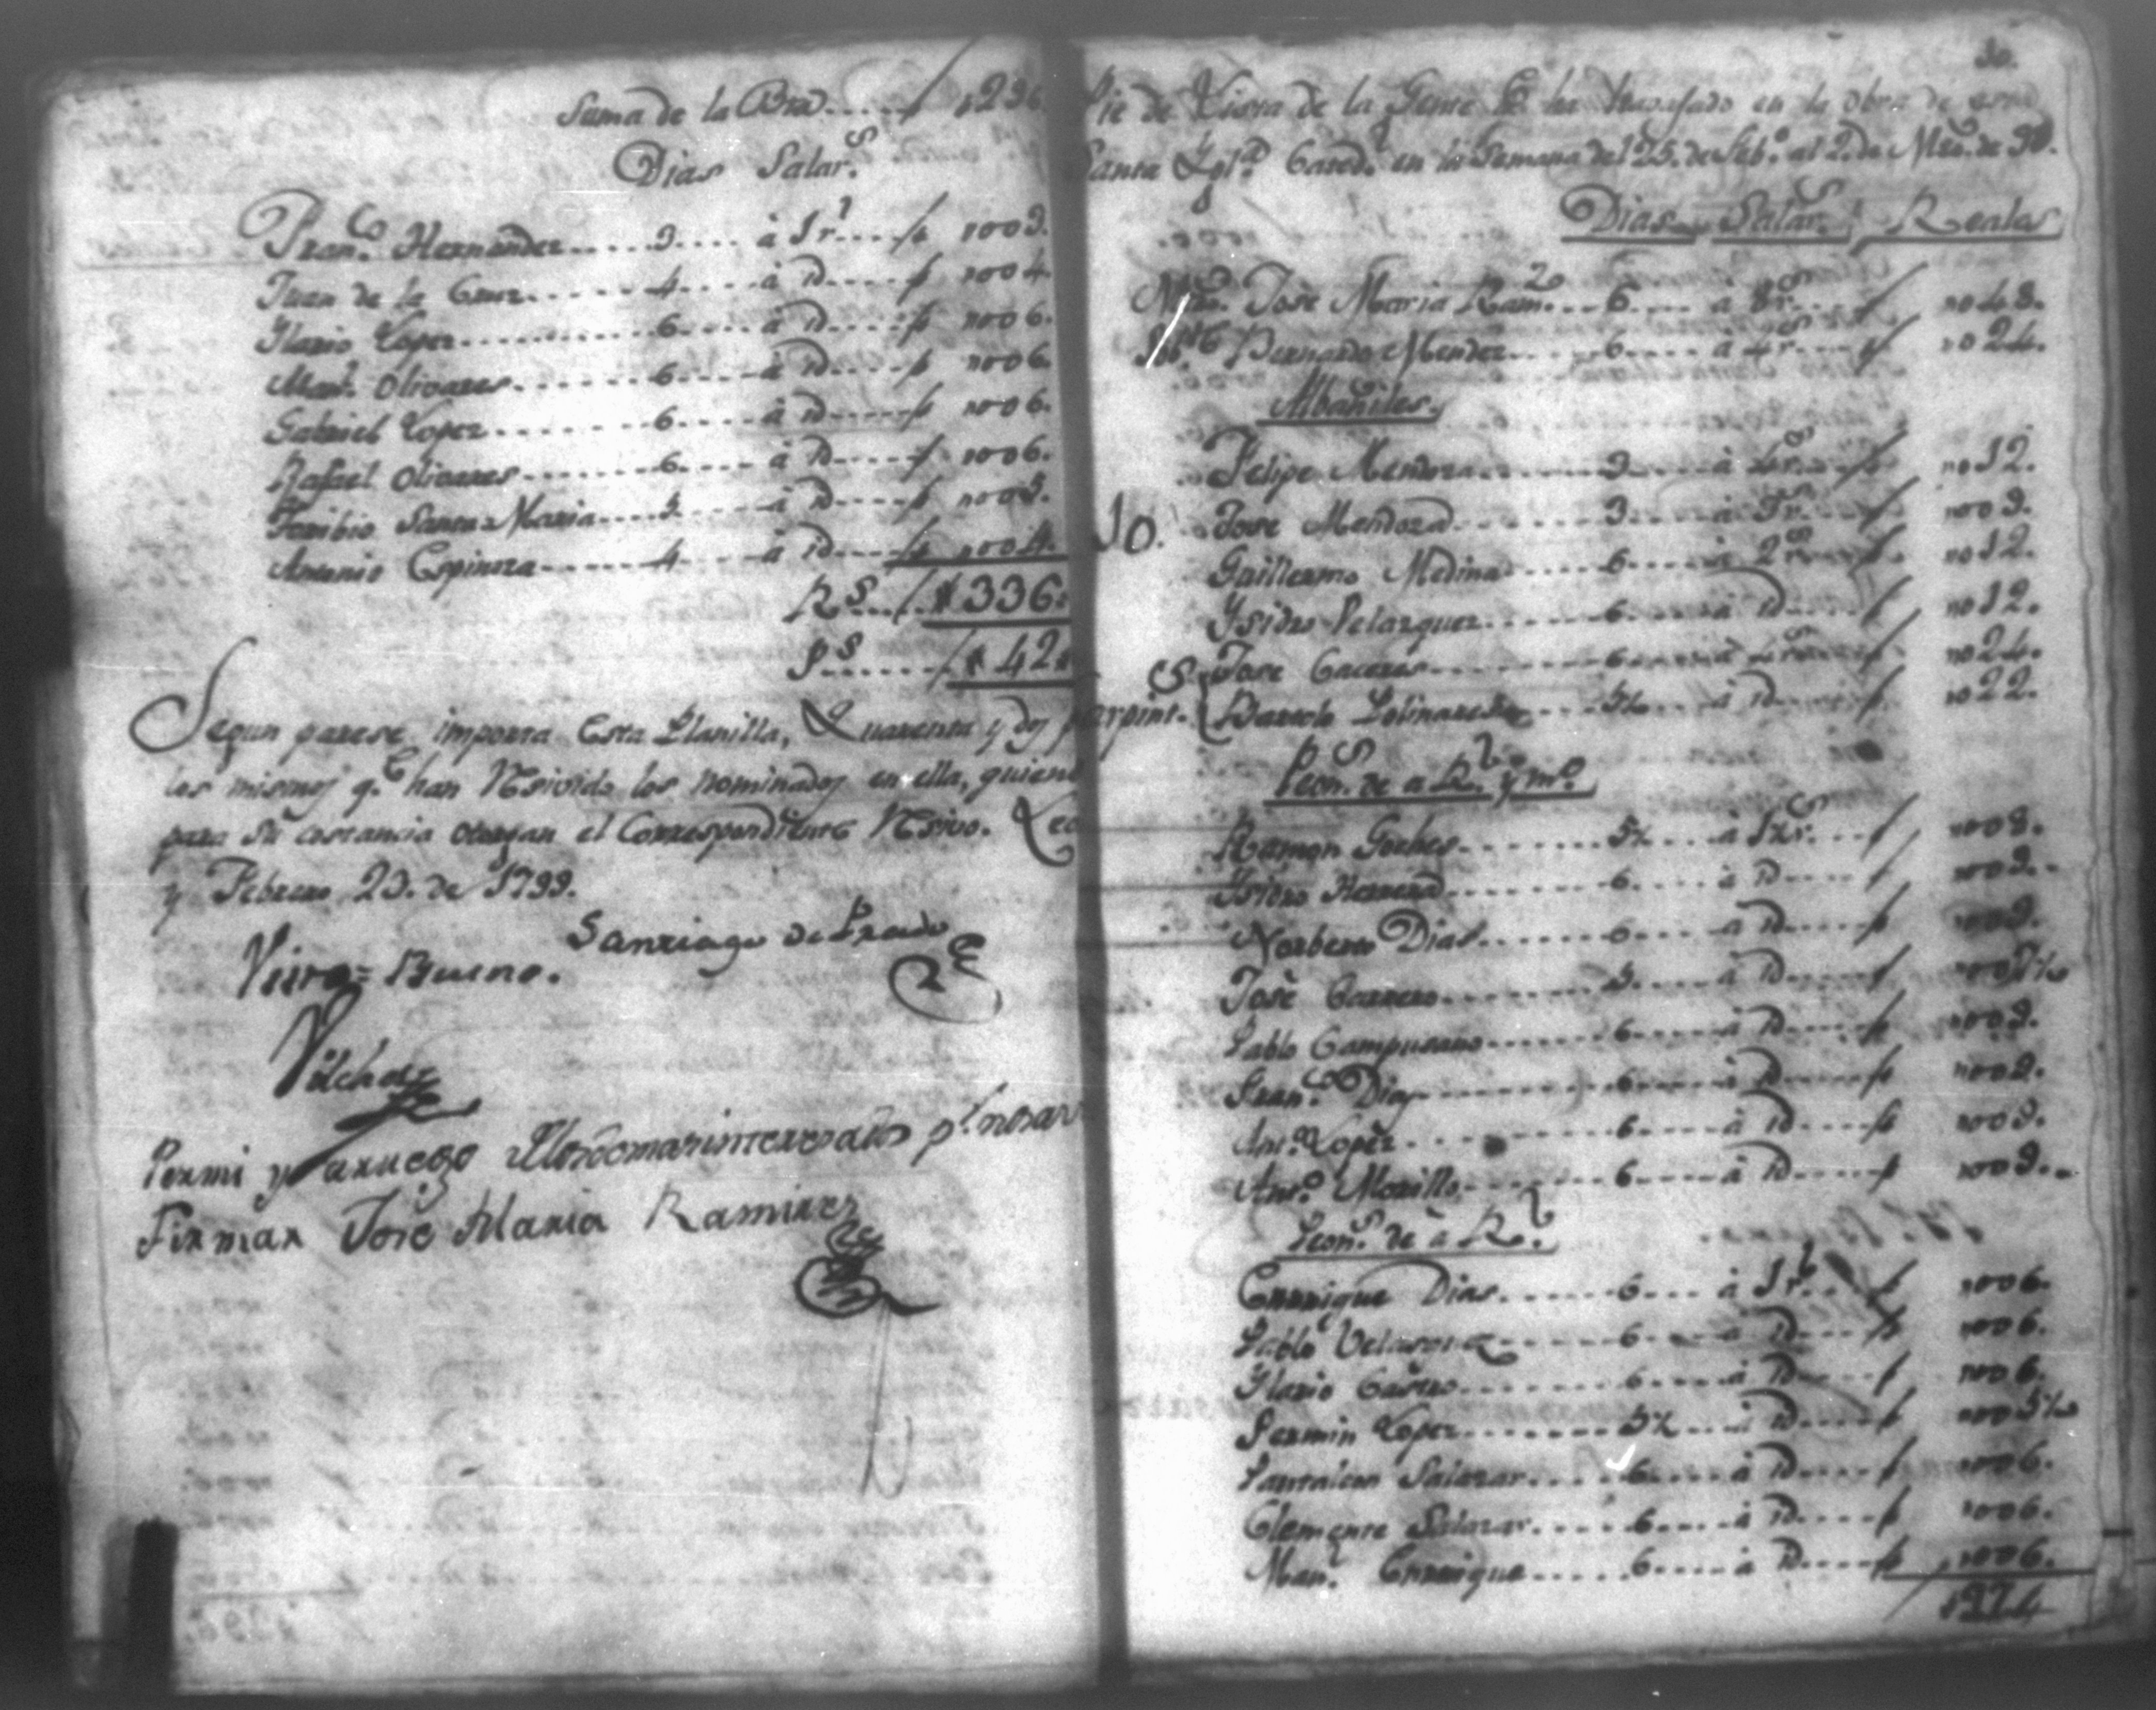 Suma de la Bta..... / ,,296
Dias Salar.s
Fran.co Hernandez..... 3.... à 1 r.l.... / ,,003.
Juan de la Cruz...... 4.... à id.... / ,,004.
Ylario Lopez...... 6.... à id.... / ,,006.
Man.l Olivares...... 6.... à id.... / ,,006.
Gabriel Lopez...... 6.... à id.... / ,,006.
Rafael Olivares...... 6.... à id.... / ,,006.
Toribio Santa Maria.... 5.... à id.... / ,,005.
Antonio Espinoza...... 4.... à id.... / ,,004.
R.s.... / ,,336.
P.s...... / ,,42,,
Segun parese importa Esta Planilla, Quarenta y dos p
los mismos q.e han Resivido los nominados en ella, quiene
para su costancia otorgan el Correspondiente Resivo. Leo
y Febrero 23. de 1799.
Santiago de Prado
Visto Bueno.
Vilches
Por mi y a ruego de los demas interesados p.r no sav
Firmar José Maria Ramirez
30.
Pie de Lista de la Gente q.e ha travajado en la obra de esta
Santa Ygl.a Cated.l en la Semana del 25. de Feb.o al 2. de Mzo. de 99.
Dias Salar.s Reales
Mtro. José Maria Ram.z.. 6.... à 8 r.s.... / ,,048.
Sob.te Bernardo Mendez.... 6.... à 4 r.s.... / ,,024.
Albañiles.
Felipe Mendoza...... 3.... à 4 r.s.... / ,,012.
10. José Mendoza...... 3.... à 3 r.s.... / ,,009.
Guillermo Medina...... 6.... à 2 r.s.... / ,,012.
Ysidro Velazquez...... 6.... à id.... / ,,012.
José Caceres...... 6.... à 4 r.s.... / ,,024.
Carpint.s Bartolo Polinares.... 5½.... à id.... / ,,022.
Peon.s de à R.l y m.o
Ramon Goches...... 5½.... à 1½ r.s.... / ,,008.
Ysidro Herrera...... 6.... à id.... / ,,009.
Norberto Dias...... 6.... à id.... / ,,009.
José Carrero...... 5.... à id.... / ,,007½
Pablo Campusano...... 6.... à id.... / ,,009.
Fran.co Dias...... 6.... à id.... / ,,009.
Ant.o Lopez...... 6.... à id.... / ,,009.
Ant.o Morillo...... 6.... à id.... / ,,009.
Peon.s de à R.l
Enrrique Dias...... 6.... à 1 r.l.... / ,,006.
Pablo Velasquez...... 6.... à id.... / ,,006.
Ylario Castro...... 6.... à id.... / ,,006.
Fermin Lopez...... 5½.... à id.... / ,,005½
Pantaleon Salazar.... 6.... à id.... / ,,006.
Clemente Salazar.... 6.... à id.... / ,,006.
Man.l Enrrique...... 6.... à id.... / ,,006.
/ ,,274